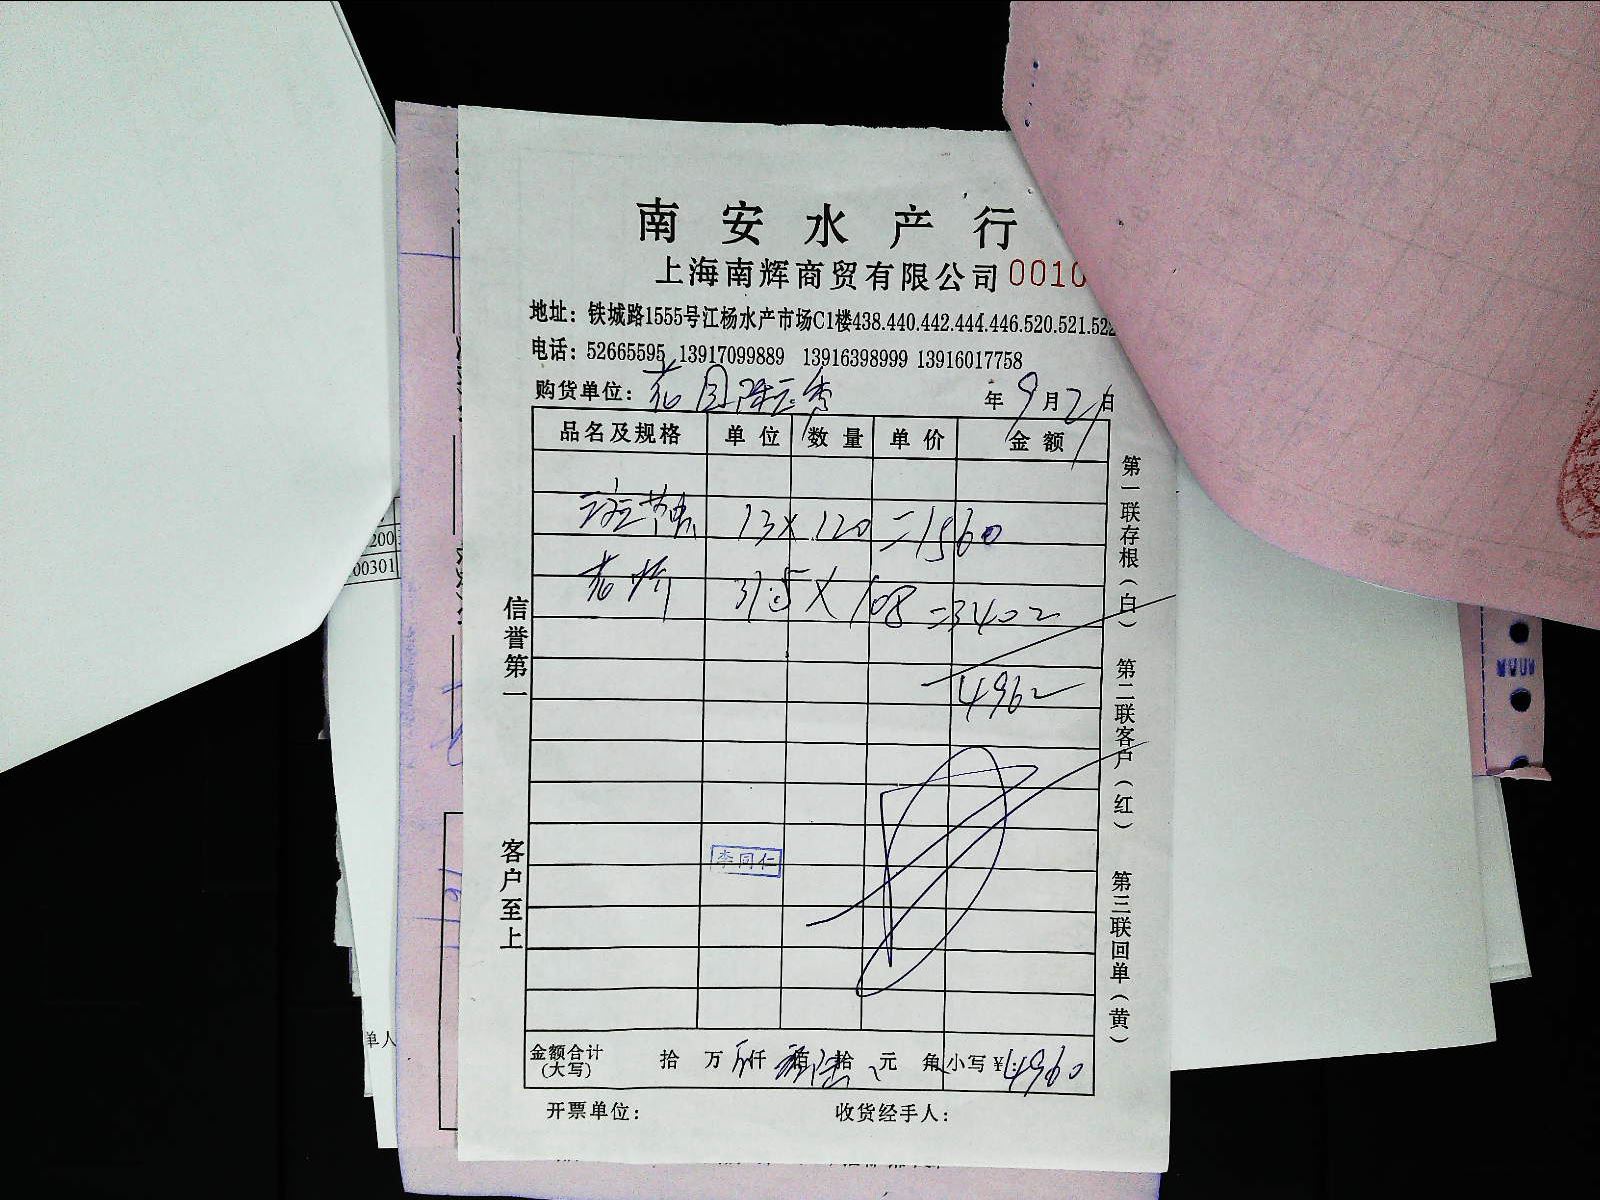 南安水产行
上海南辉商贸有限公司 0010
地址：铁城路1555号江杨水产市场C1楼438.440.442.444.446.520.521.522
电话：52665595 13917099889 13916398999 13916017758
购货单位：花园 年 9 月 21 日
品名及规格 单位 数量 单价 金额
斑节 13 × 120 = 1560
31.5 × 108 = 3402
4962
李同仁
金额合计(大写) 拾 万 仟 佰 拾 元 角 小写¥：4960
开票单位： 收货经手人：
信誉第一
客户至上
第一联存根(白) 第二联客户(红) 第三联回单(黄)
200
00301
单人